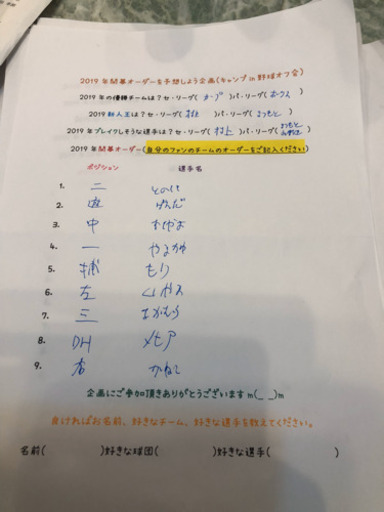 2019年開幕オーダーを予想しよう企画(キャンプin野球オフ会)
2019年の優勝チームは?セ・リーグ( カープ )パ・リーグ( ホークス )
2019新人王は?セ・リーグ( )パ・リーグ( )
2019年ブレイクしそうな選手は?セ・リーグ( 村上 )パ・リーグ( )
2019年開幕オーダー(自分のファンのチームのオーダーをご記入ください)
ポジション 選手名
1. 二 とのに
2. 遊 げんだ
3. 中
4. 一 やまかわ
5. 捕 もり
6. 左 くりやま
7. 三 なかむら
8. DH メヒア
9. 右 かねこ
企画にご参加頂きありがとうございますm(_ _)m
良ければお名前、好きなチーム、好きな選手を教えてください。
名前( )好きな球団( )好きな選手( )